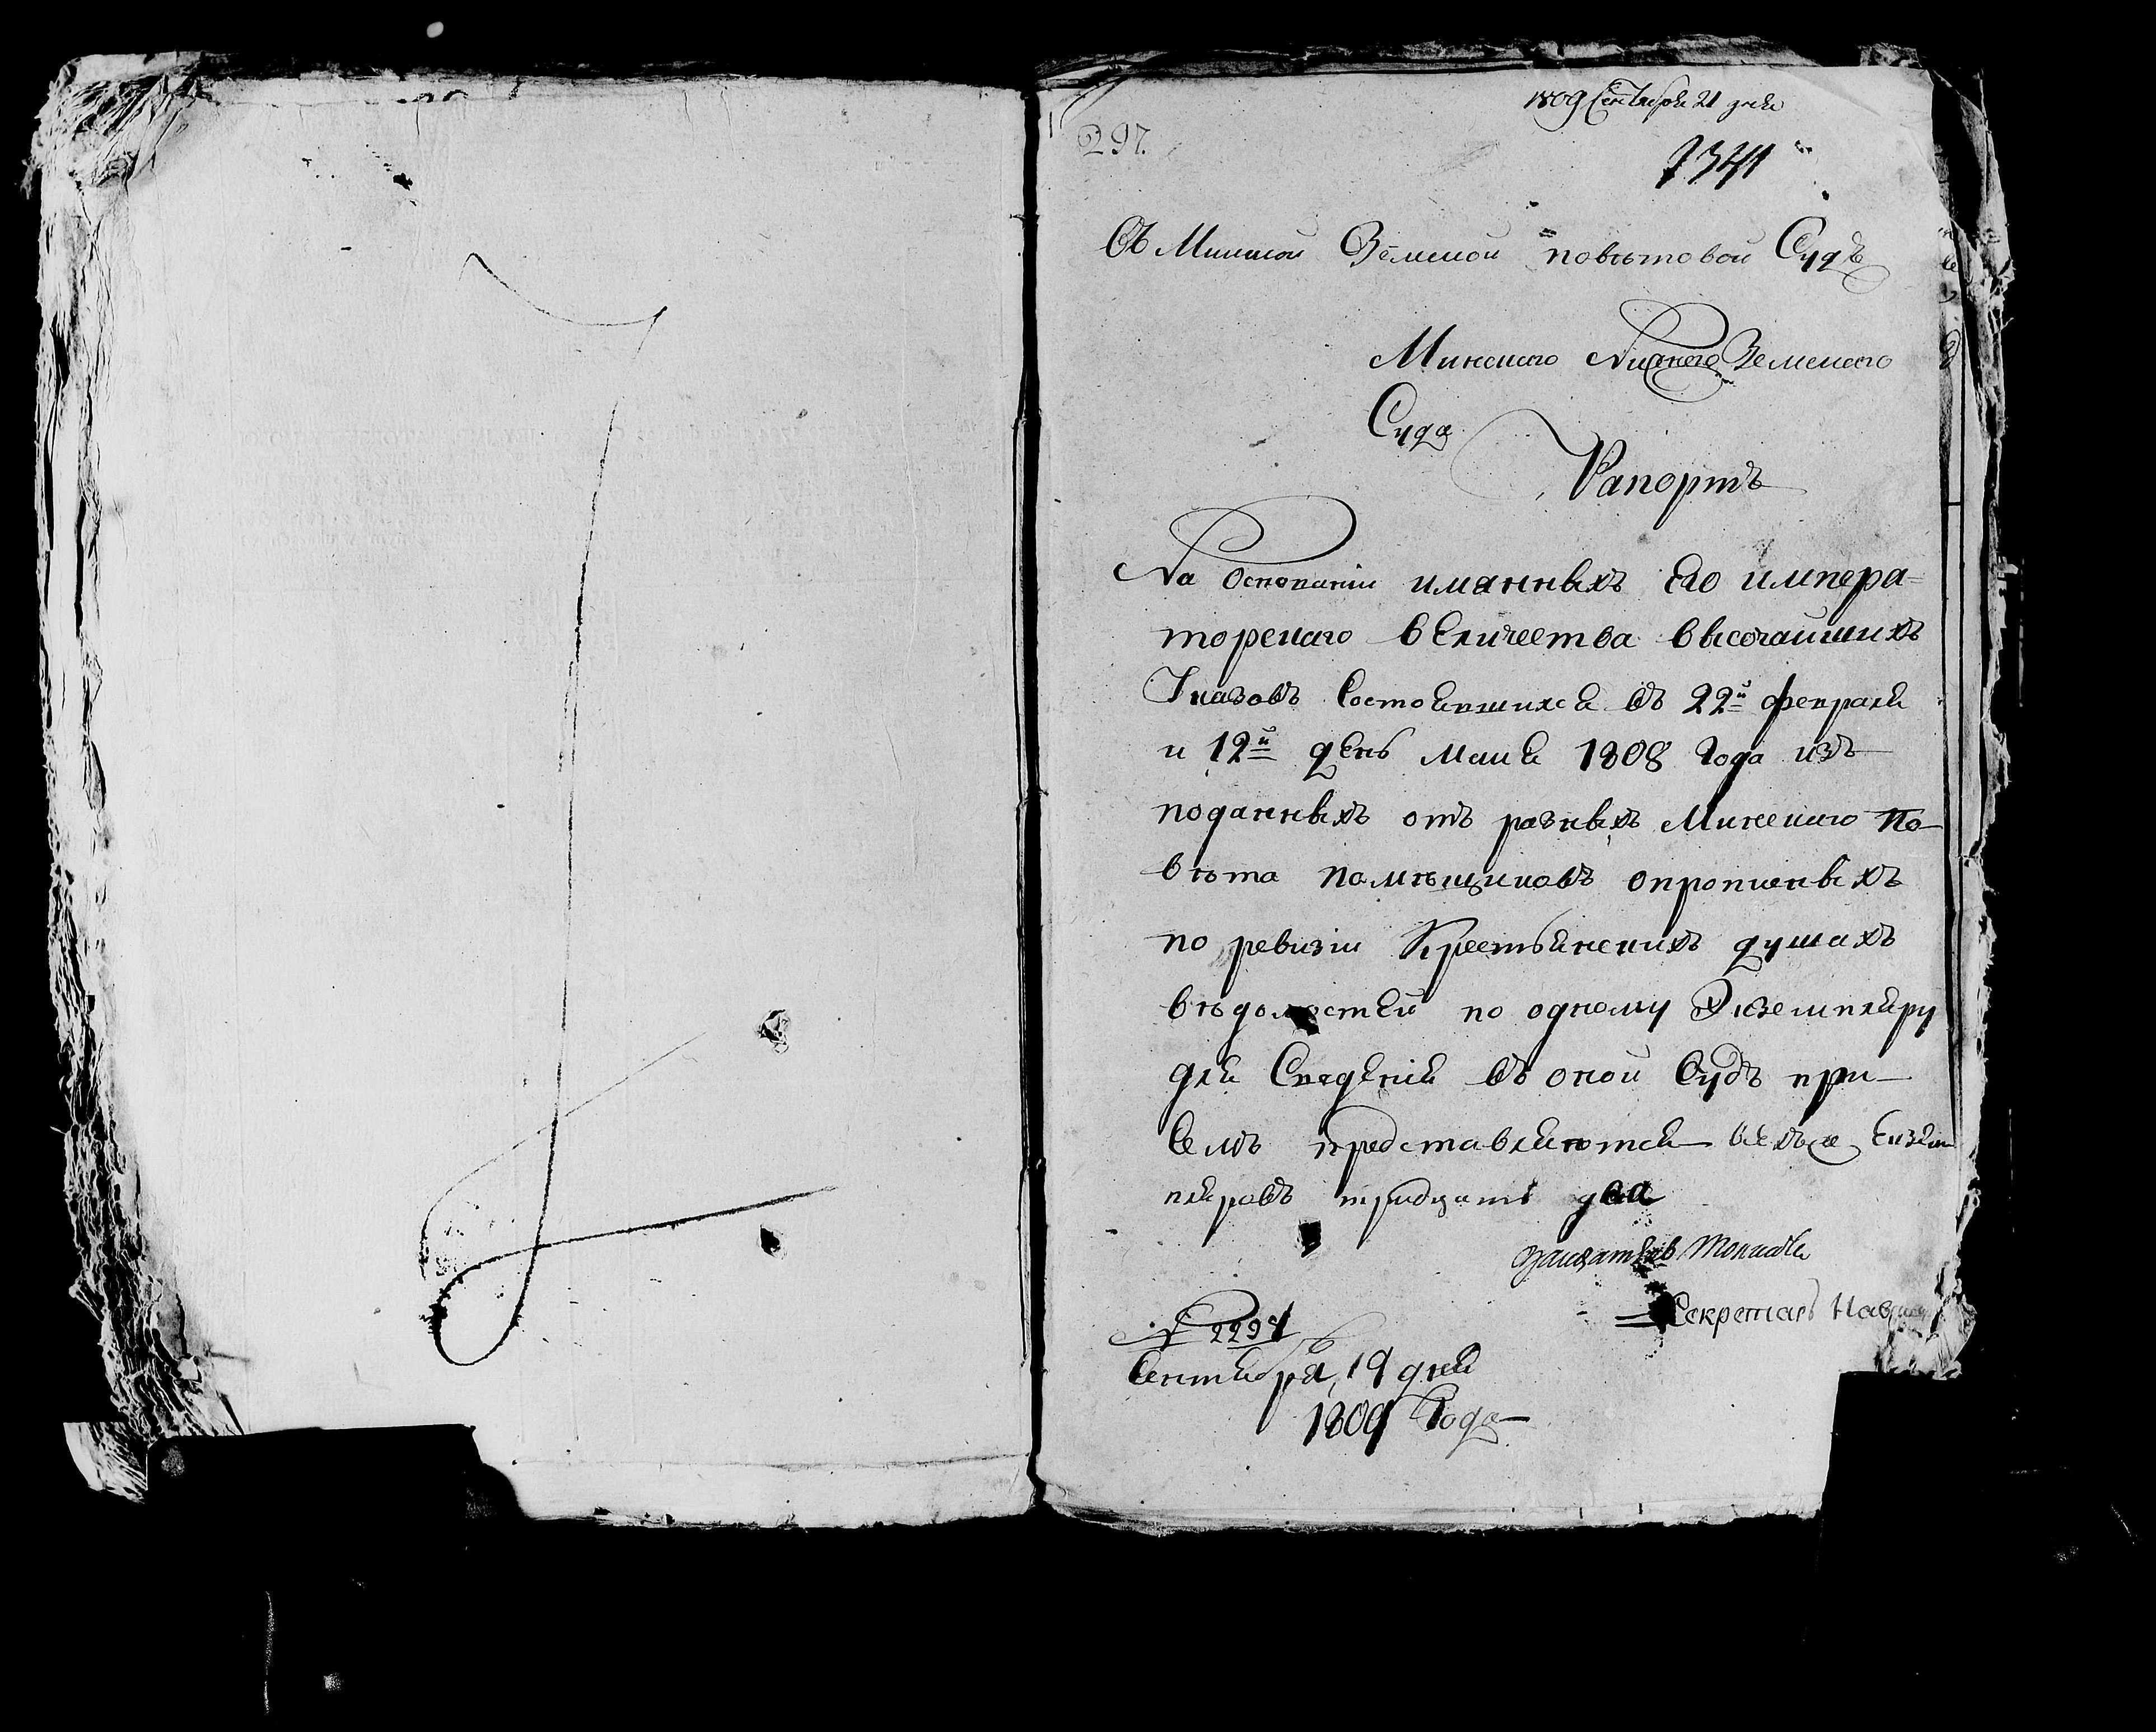 1809 Сентября 21 дня
297.
1341
Въ Минской Земской поветовой Судъ
Минского Нижнего Земского
Суда
Рапортъ
На Основании имянныхъ Его импера=
торскаго вЕличества высочайшихъ
Указовъ Состоявшихся въ 22й февраля
и 12й дЕнь маия 1808 Года изъ
поданныхъ отъ разныхъ Минского По-
вѣта помѣщиковъ опропис­ныхъ
по ревизіи Крестьянскихъ душахъ
вѣдомостЕй по одному Экземпляру
для СвѣдЕния въ оной Судъ при-
Семъ представляются всехъ Екзем
пляровъ тридцать два
Заседатель
Секретарь
№ 2297
Сентября 19 дня
1809 Года